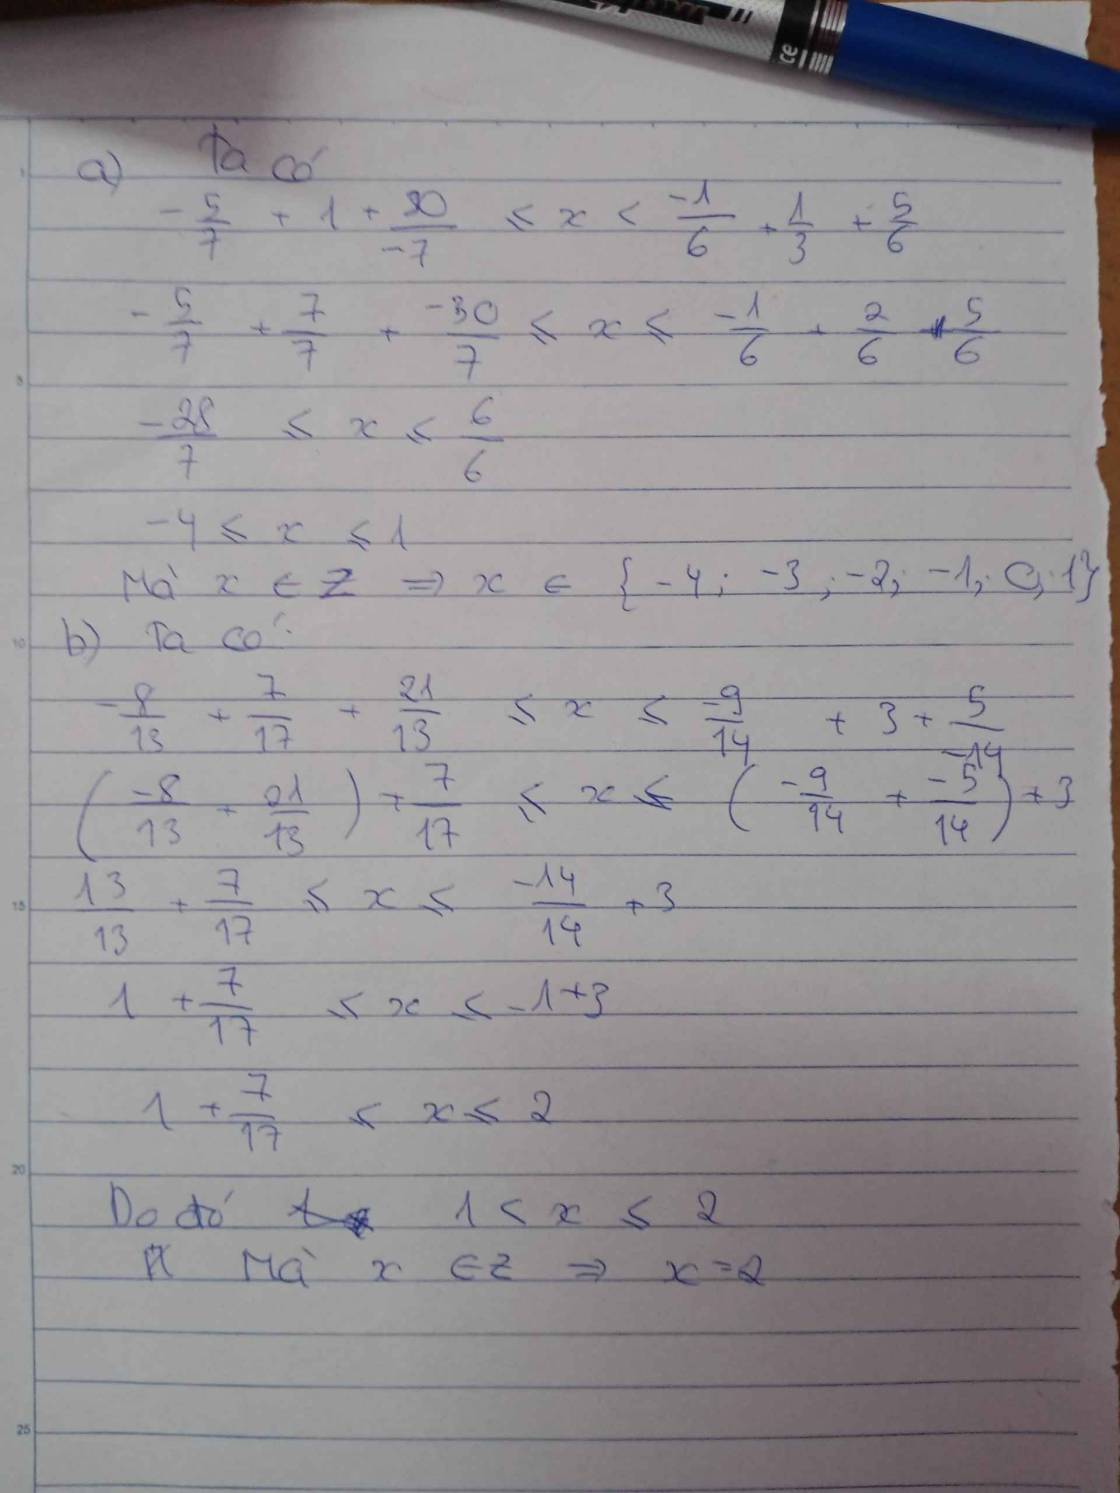 a) Ta có
-5/7 + 1 + 30/-7 ≤ x < -1/6 + 1/3 + 5/6
-5/7 + 7/7 + -30/7 ≤ x ≤ -1/6 + 2/6 + 5/6
-28/7 ≤ x ≤ 6/6
-4 ≤ x ≤ 1
Mà x ∈ Z ⇒ x ∈ {-4; -3; -2; -1; 0; 1}
b) Ta có:
-8/13 + 7/17 + 21/13 ≤ x ≤ -9/14 + 3 + 5/-14
(-8/13 + 21/13) + 7/17 ≤ x ≤ (-9/14 + -5/14) + 3
13/13 + 7/17 ≤ x ≤ -14/14 + 3
1 + 7/17 ≤ x ≤ -1+3
1 + 7/17 ≤ x ≤ 2
Do đó 1 < x ≤ 2
Mà x ∈ Z ⇒ x = 2